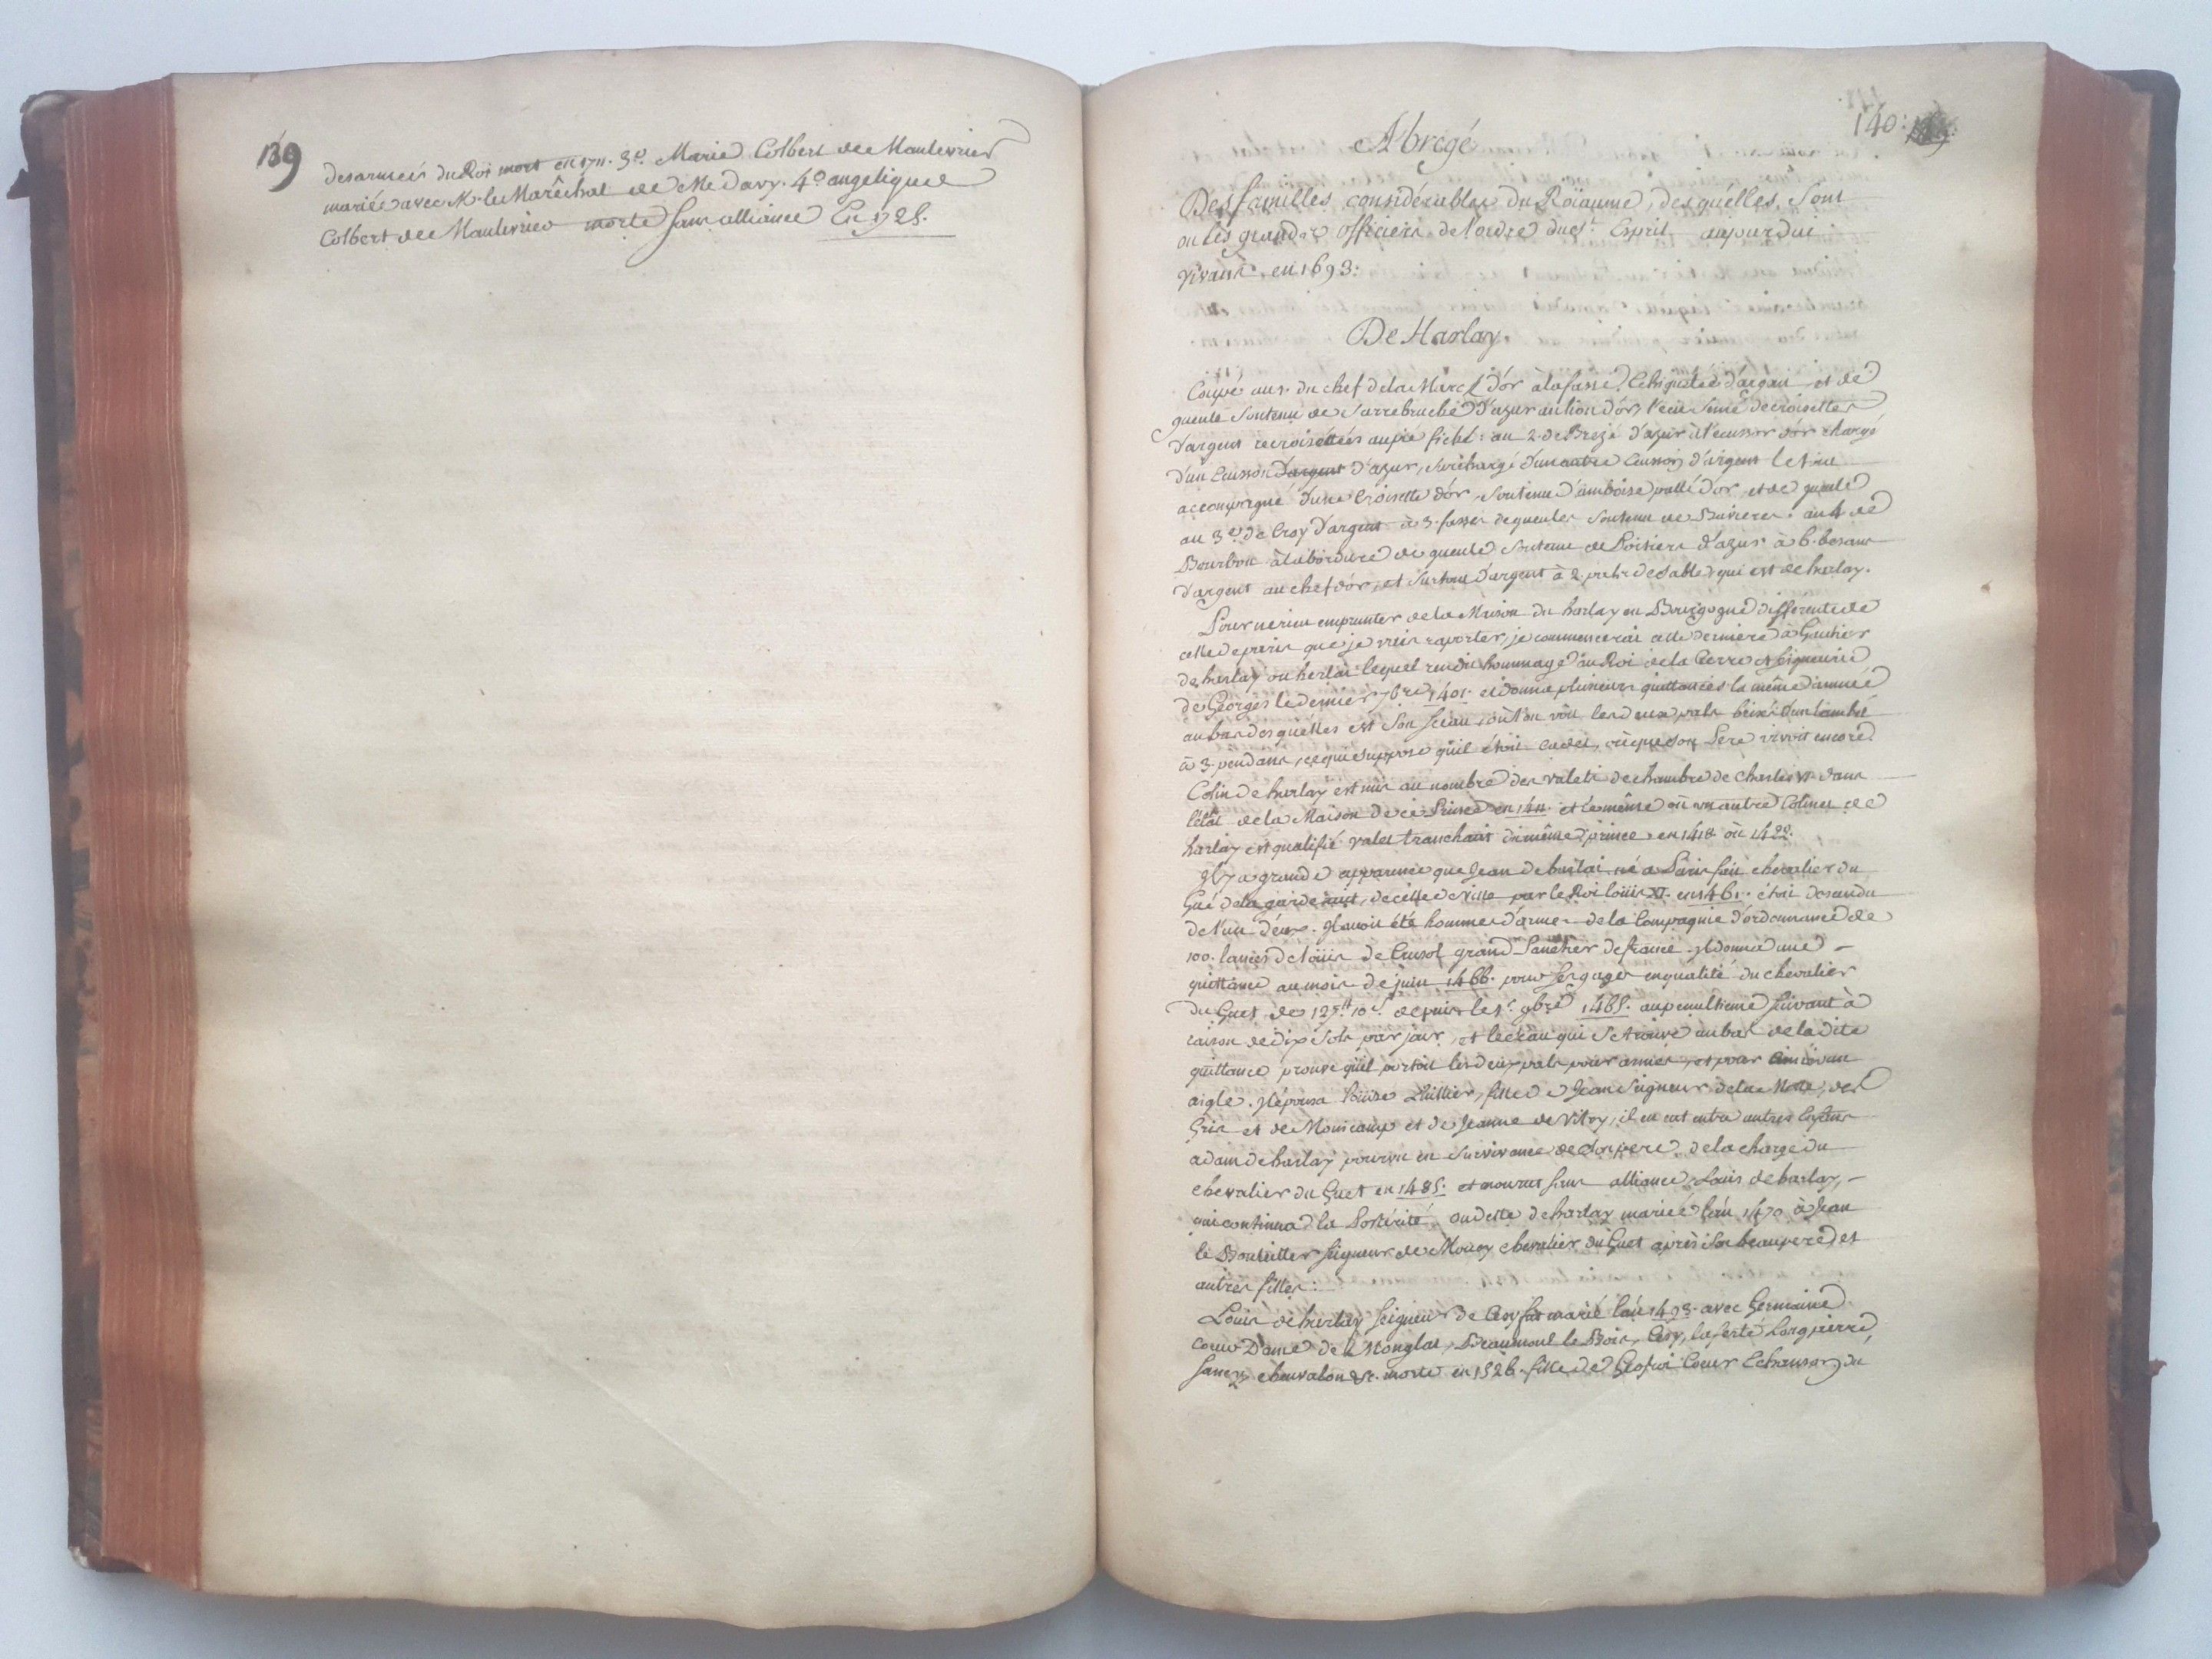 139
des armées du Roi mort en 1711. 3.º Marie Colbert de Maulevrier
mariée avec M. le Marêchal de Medavy. 4.º angelique
Colbert de Maulevrier morte sans alliance En 1725.
140:
Abregé
Des familles considérables du Roïaume, desquélles, sont
ou les grands officiers de l'ordre du St. Esprit aujourdui
vivans en 1693:
De Harlay.
Coupé au 1. du chef de la Marck d'or à la fasse Echiquetée d'argent et de
gueule soutenu de Sarrebruche d'azur au lion d'or, l'ecu semé de croisettes
d'argent recroisettées au pié fiché: au 2. de Brezé d'azur à l'ecusson d'or chargé
d'un Ecusson d'argent d'azur, surchargé d'un autre Ecusson d'argent le tout
accompagné d'une Croisette d'or, soutenu d'amboise pallé d'or et de gueule
au 3.e de Croy d'argent à 3. fasses de gueules soutenu de Bavieres: au 4 de
Bourbon à la bordure de gueule soutenu de Poitiers d'azur à 6. besans
d'argent au chef d'or, et surtout d'argent à 2. pals de sable qui est de harlay.
Pour ne rien emprunter de la Maison du harlay en Bourgogne differente de
celle de paris que je vais raporter, je commencerai cette derniere à Gautier
de harlay ou herlai lequel rendit hommage au Roi de la Terre et seigneurie
de Georges le dernier 7bre 1401. et donna plusieurs quittances la même année
au bas desquélles est son sceau, où l'on voit les deux pals brisé d'un lambel
à 3. pendans, ce qui suppose qu'il étoit cadet, où que son Pere vivoit encore.
Colin de harlay est mis au nombre des valets de chambre de charles VI. dans
l'état de la Maison de ce Prince en 1411. et le même où un autre Colinet de
harlay est qualifié valet tranchant du même prince en 1418 où 1422.
Il y a grande apparence que Jean de harlai né a Paris fait chevalier du
Gué de la garde de nuit, de cette ditte ville par le Roi loüis XI. en 1461. étoit descendu
de l'un d'eux. Il avoit été homme d'armes de la Compagnie d'ordonnance de
100. lances de loüis de Crusol grand Panetier de france. Il donna une
quittance au mois de juin 1466. pour ses gages en qualité du chevalier
du Guet de 127ᵗᵗ 10 s. depuis le 1.r 9bre 1465. au penultieme suivant à
raison de dix sols par jour, et le sceau qui se trouve au bas de la dite
quittance prouve qu'il portoit les deux pals pour armes, et pour cimier un
aigle. Il épousa loüise Luillier, fille de Jean seigneur de la Motte, de
Gris et de Monicamp et de Jeanne de Vitry, il en eut entre autres Enfans
adam de harlay pourvu en survivance de son pere de la charge du
chevalier du Guet en 1485. et mourut sans alliance, Louis de harlay,
qui continua la Postérité, oudette de harlay mariée l'an 1470 à Jean
le Bouteiller seigneur de Moucy chevalier du Guet après son beau pere et
autres filles.
Louis de harlay seigneur de Cesy fut marié l'an 1493. avec Germaine
coeur Dame de Monglat, Beaumont le Bois, Cesy, la ferté Longpierre,
Sancy, chauvalon &c. morte en 1526. fille de Geofroi Coeur Echanson du